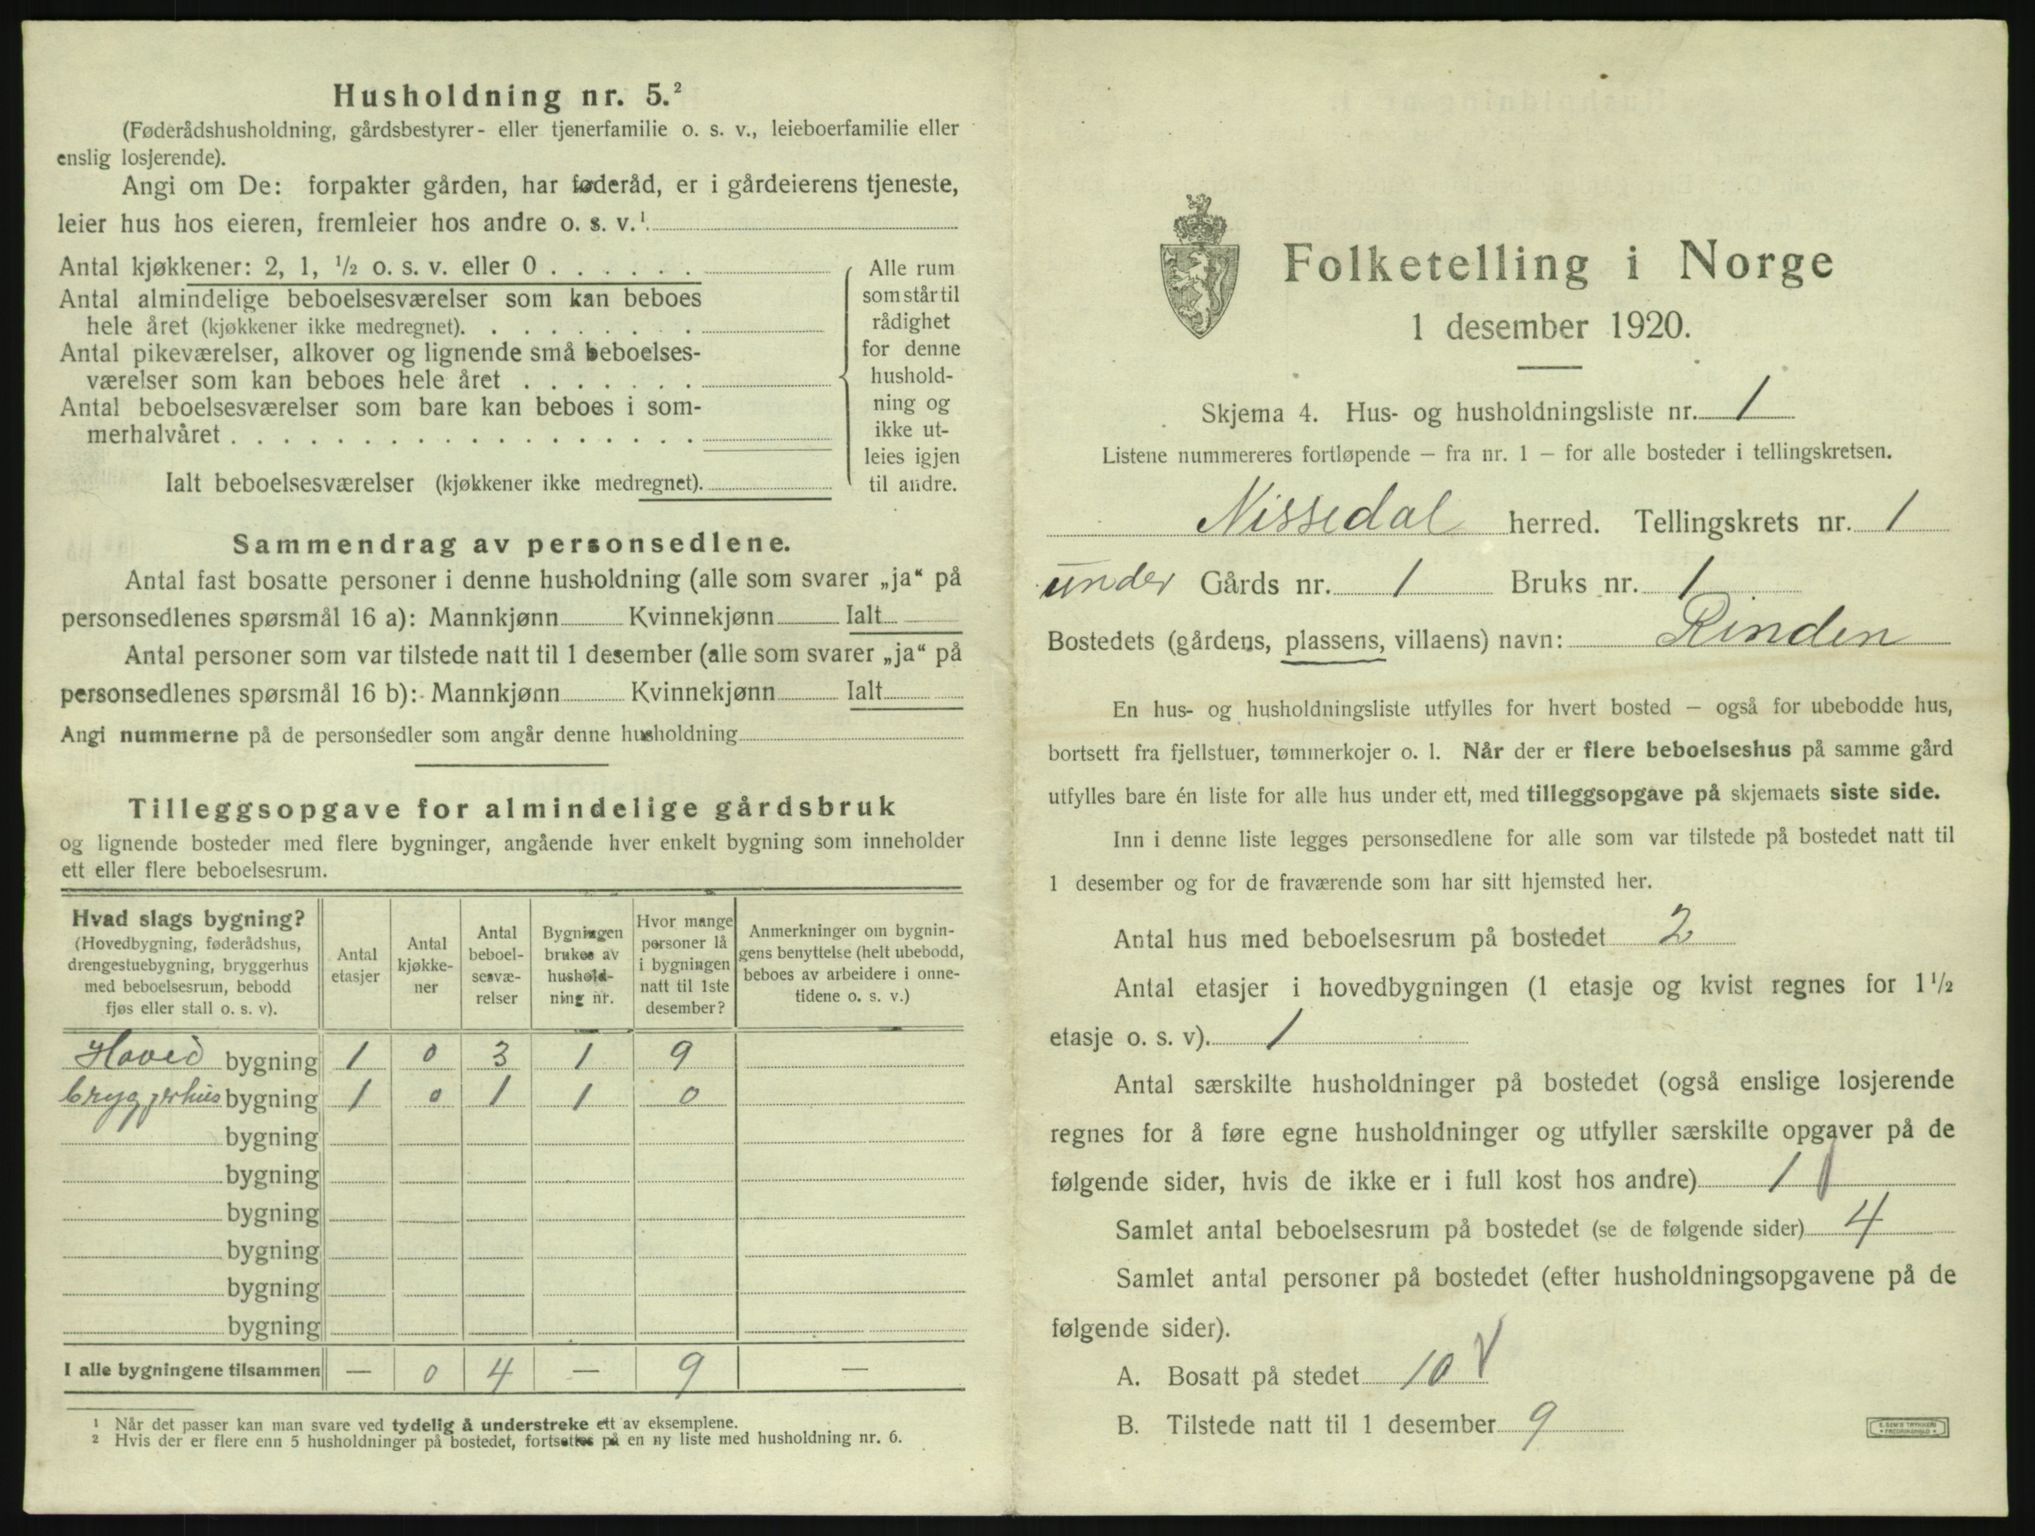 Husholdning nr. 5.²
(Føderådshusholdning, gårdsbestyrer- eller tjenerfamilie o. s. v., leieboerfamilie eller
enslig losjerende).
Angi om De: forpakter gården, har føderåd, er i gårdeierens tjeneste,
leier hus hos eieren, fremleier hos andre o. s. v.¹
Antal kjøkkener: 2, 1, ½ o. s. v. eller 0 . . . . . .
Antal almindelige beboelsesværelser som kan beboes
hele året (kjøkkener ikke medregnet). . . . . . . . .
Antal pikeværelser, alkover og lignende små beboelses-
værelser som kan beboes hele året . . . . . . .
Antal beboelsesværelser som bare kan beboes i som-
merhalvåret . . . . . . . . . . . . . . . . . .
Ialt beboelsesværelser (kjøkkener ikke medregnet).
Alle rum
som står til
rådighet
for denne
hushold-
ning og
ikke ut-
leies igjen
til andre.
Sammendrag av personsedlene.
Antal fast bosatte personer i denne husholdning (alle som svarer „ja“ på
personsedlenes spørsmål 16 a): Mannkjønn Kvinnekjønn Ialt
Antal personer som var tilstede natt til 1 desember (alle som svarer „ja“ på
personsedlenes spørsmål 16 b): Mannkjønn Kvinnekjønn Ialt
Angi nummerne på de personsedler som angår denne husholdning
Tilleggsopgave for almindelige gårdsbruk
og lignende bosteder med flere bygninger, angående hver enkelt bygning som inneholder
ett eller flere beboelsesrum.
Hvad slags bygning?
(Hovedbygning, føderådshus,
drengestuebygning, bryggerhus
med beboelsesrum, bebodd
fjøs eller stall o. s. v).
Antal
etasjer
Antal
kjøkke-
ner
Antal
beboel-
sesvæ-
relser
Bygningen
brukes av
hushold-
ning nr.
Hvor mange
personer lå
i bygningen
natt til 1ste
desember?
Anmerkninger om bygnin-
gens benyttelse (helt ubebodd,
beboes av arbeidere i onne-
tidene o. s. v.)
Hoved bygning 1 0 3 1 9
bryggerhus bygning 1 0 1 1 0
bygning
bygning
bygning
bygning
bygning
bygning
I alle bygningene tilsammen — 0 4 — 9 —
¹ Når det passer kan man svare ved tydelig å understreke ett av eksemplene.
² Hvis der er flere enn 5 husholdninger på bostedet, fortsettes på en ny liste med husholdning nr. 6.
Folketelling i Norge
1 desember 1920.
Skjema 4. Hus- og husholdningsliste nr. 1
Listene nummereres fortløpende — fra nr. 1 — for alle bosteder i tellingskretsen.
Nissedal herred. Tellingskrets nr. 1
under Gårds nr. 1 Bruks nr. 1
Bostedets (gårdens, plassens, villaens) navn: Rinden
En hus- og husholdningsliste utfylles for hvert bosted — også for ubebodde hus,
bortsett fra fjellstuer, tømmerkojer o. l. Når der er flere beboelseshus på samme gård
utfylles bare én liste for alle hus under ett, med tilleggsopgave på skjemaets siste side.
Inn i denne liste legges personsedlene for alle som var tilstede på bostedet natt til
1 desember og for de fraværende som har sitt hjemsted her.
Antal hus med beboelsesrum på bostedet 2
Antal etasjer i hovedbygningen (1 etasje og kvist regnes for 1½
etasje o. s. v). 1
Antal særskilte husholdninger på bostedet (også enslige losjerende
regnes for å føre egne husholdninger og utfyller særskilte opgaver på de
følgende sider, hvis de ikke er i full kost hos andre) 1
Samlet antal beboelsesrum på bostedet (se de følgende sider) 4
Samlet antal personer på bostedet (efter husholdningsopgavene på de
følgende sider).
A. Bosatt på stedet 10
B. Tilstede natt til 1 desember 9